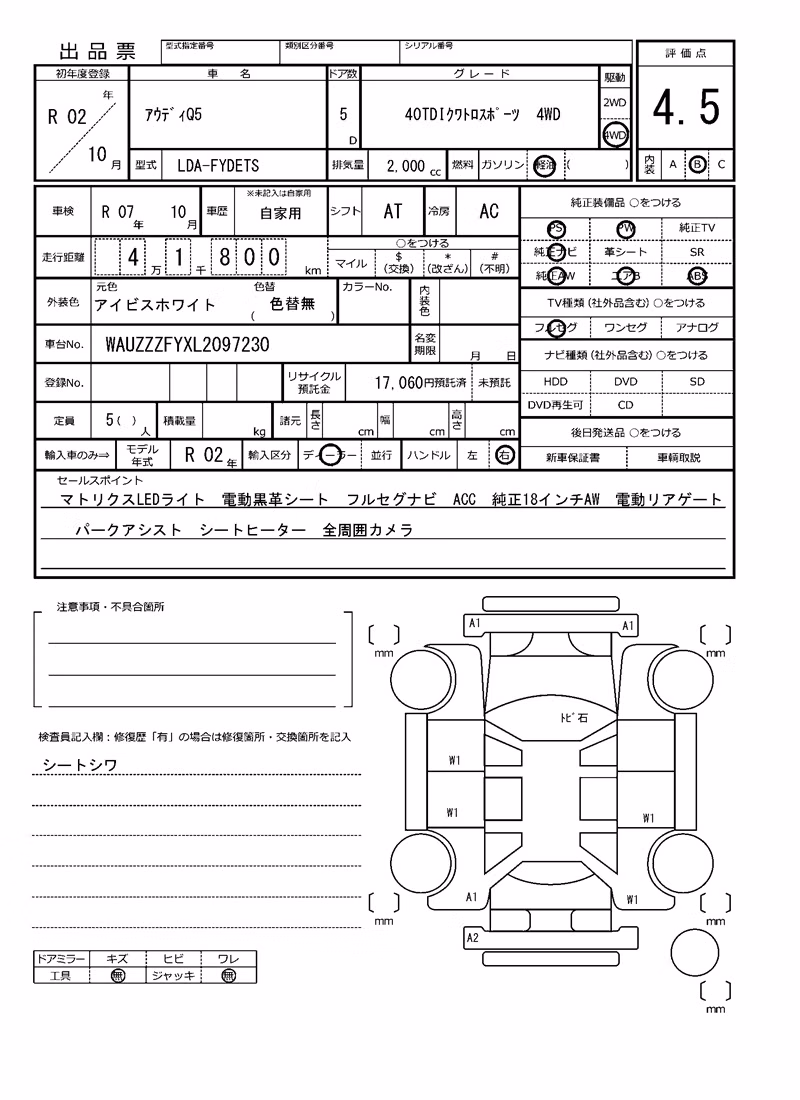 出品票
型式指定番号 類別区分番号 シリアル番号
評価点
4.5
内装 A B C
初年度登録 車名 ドア数 グレード 駆動
R 02 年 10 月
アウディQ5 5 D 40TDIクワトロスポーツ 4WD
2WD
4WD
型式 LDA-FYDETS 排気量 2,000 cc 燃料 ガソリン 軽油 ( )
車検 R 07 年 10 月 車歴 ※未記入は自家用 自家用 シフト AT 冷房 AC
走行距離 4 万 1 千 8 0 0 km
○をつける
マイル $ (交換) * (改ざん) # (不明)
外装色 元色 アイビスホワイト 色替 ( 色替無 ) カラーNo. 内装色
車台No. WAUZZZFYXL2097230 名変期限 月 日
登録No. リサイクル預託金 17,060円預託済 未預託
定員 5 ( ) 人 積載量 kg 諸元 長さ cm 幅 cm 高さ cm
輸入車のみ⇒ モデル年式 R 02 年 輸入区分 ディーラー 並行 ハンドル 左 右
純正装備品 ○をつける
PS PW 純正TV
純正ナビ 革シート SR
純正AW エアB ABS
TV種類 (社外品含む) ○をつける
フルセグ ワンセグ アナログ
ナビ種類 (社外品含む) ○をつける
HDD DVD SD
DVD再生可 CD
後日発送品 ○をつける
新車保証書 車輌取説
セールスポイント
マトリクスLEDライト 電動黒革シート フルセグナビ ACC 純正18インチAW 電動リアゲート
パークアシスト シートヒーター 全周囲カメラ
注意事項・不具合箇所
検査員記入欄：修復歴「有」の場合は修復箇所・交換箇所を記入
シートシワ
ドアミラー キズ ヒビ ワレ
工具 無 ジャッキ 無
A1 A1
mm mm
トビ石
W1
W1 W1
A1 W1
mm mm
A2
mm